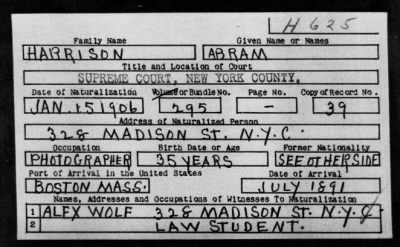 H 625
Family Name Given Name or Names
HARRISON ABRAM
Title and Location of Court
SUPREME COURT, NEW YORK COUNTY.
Date of Naturalization Volume or Bundle No. Page No. Copy of Record No.
JAN. 15 1906 295 - 39
Address of Naturalized Person
328 MADISON ST. N.Y.C.
Occupation Birth Date or Age Former Nationality
PHOTOGRAPHER 35 YEARS SEE OTHER SIDE
Port of Arrival in the United States Date of Arrival
BOSTON MASS. JULY 1891
Names, Addresses and Occupations of Witnesses To Naturalization
1 ALEX WOLF 328 MADISON ST. N.Y.C
2 LAW STUDENT.